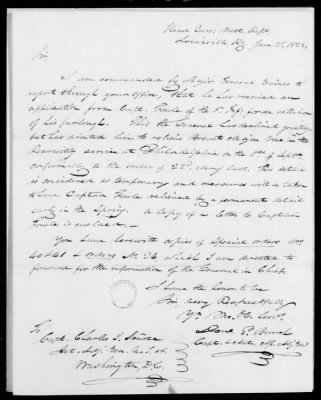 Head Qrs: West. Dept.
Louisville Ky June 21, 1832.
Sir
I am commanded by Major General Gaines to
report through your office, that he has received an
application from Capt. of the Inf. for an extension
of his furlough. This the General has declined granting
but has directed him to relieve Brevet Major in the
Recruiting service at Philadelphia on the 1st of Sept.
conformably to the orders of 22d. May last. This detail
is considered as temporary and measures will be taken
to have Captain relieved by a permanent detail
early in the Spring. A Copy of a letter to Captain
is enclosed.
You have herewith copies of Special orders Nos
40 & 41 & orders No. 26 which I am directed to
forward for the information of the General in Chief.
I have the honor to be
Sir Very Respectfully
Yr. Mo. Ob. Servt.
E. Burch
Capt.
To
Capt. Charles J. Nourse
Act. Adj. Gen. U.S. Ar
Washington, D.C.